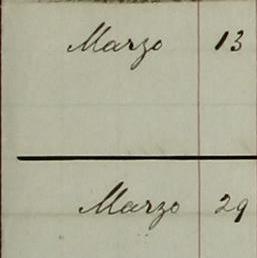 Marzo 13
Marzo 29